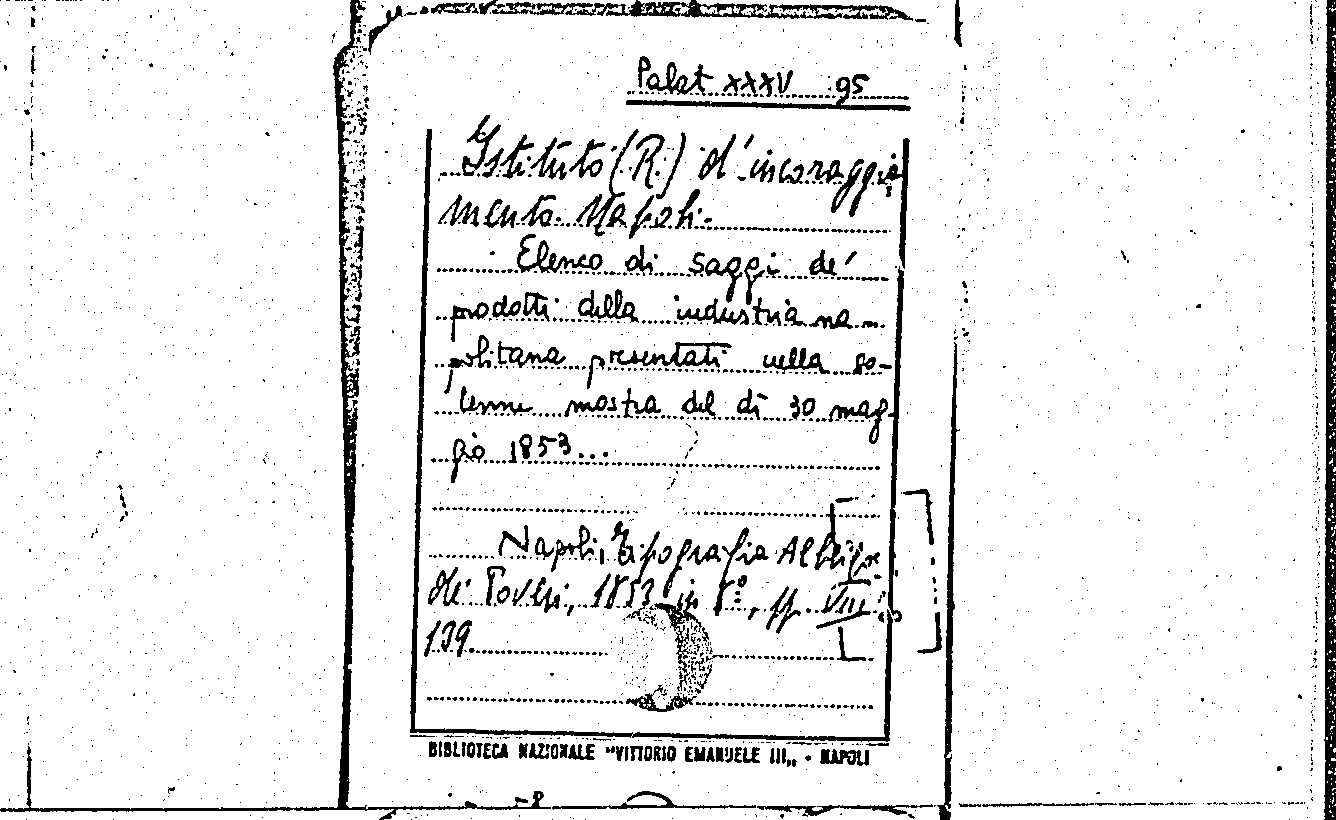 Palat XXXV 95
Istituto (R.) d'incoraggia
mento. Napoli.
Elenco di saggi de'
prodotti della industria na-
politana presentati nella so-
lenne mostra del dì 30 mag-
gio 1853...
Napoli, Tipografia
de' Poveri, 1853 in 8°, pp. VIII
139.
BIBLIOTECA NAZIONALE "VITTORIO EMANUELE III„ - NAPOLI